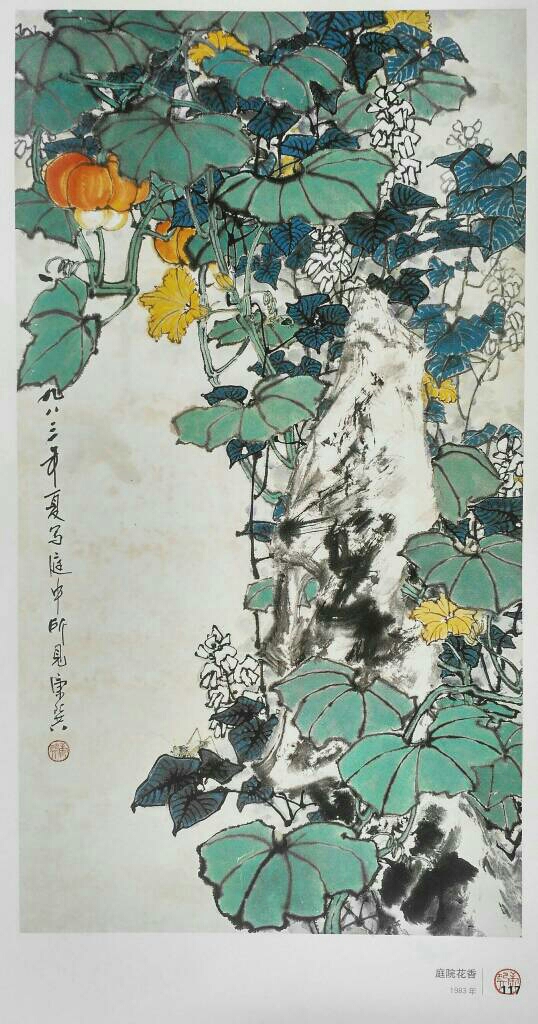 九八三年夏写庭中所見
庭院花香
1983 年
117